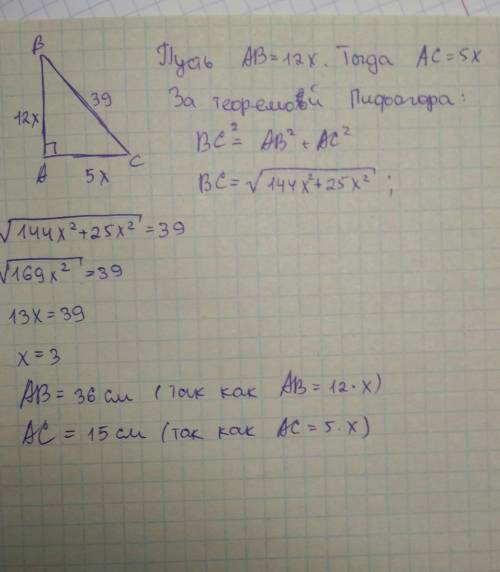 B
Пусть AB=12x. Тогда AC=5x
39
За теоремой Пифагора:
12x
BC² = AB² + AC²
A
C
5x
BC=√144x²+25x² ;
√144x²+25x² =39
√169x² =39
13x=39
x=3
AB=36 см (так как AB=12·x)
AC = 15 см (так как AC=5·x)